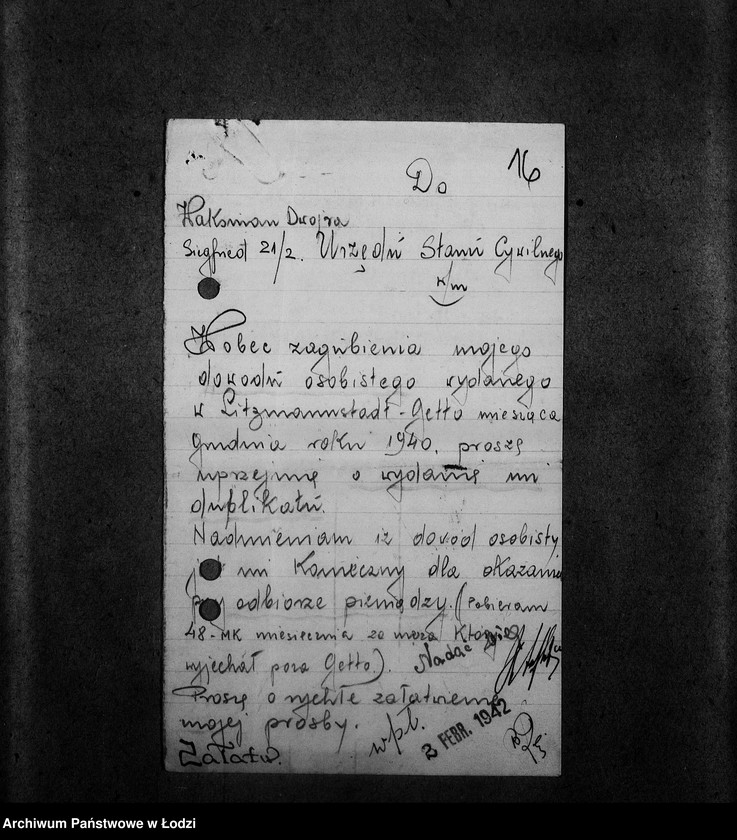 16
Do
Waksman Dwojra
Siegfried 21/2. Urzędu Stanu Cywilnego
w/m
Wobec zagubienia mojego
dowodu osobistego wydanego
w Litzmannstadt-Getto miesiąca
grudnia roku 1940. proszę
uprzejmie o wydanie mi
duplikatu.
Nadmieniam iż dowód osobisty
mi konieczny dla okazania
odbiorze pieniędzy. (Pobieram
48-MK miesięcznie za męża
wyjechał poza Getto). Nadać
Proszę o rychłe załatwienie
mojej prośby. wpł. 2 FEBR. 1942
Załatw.
Archiwum Państwowe w Łodzi